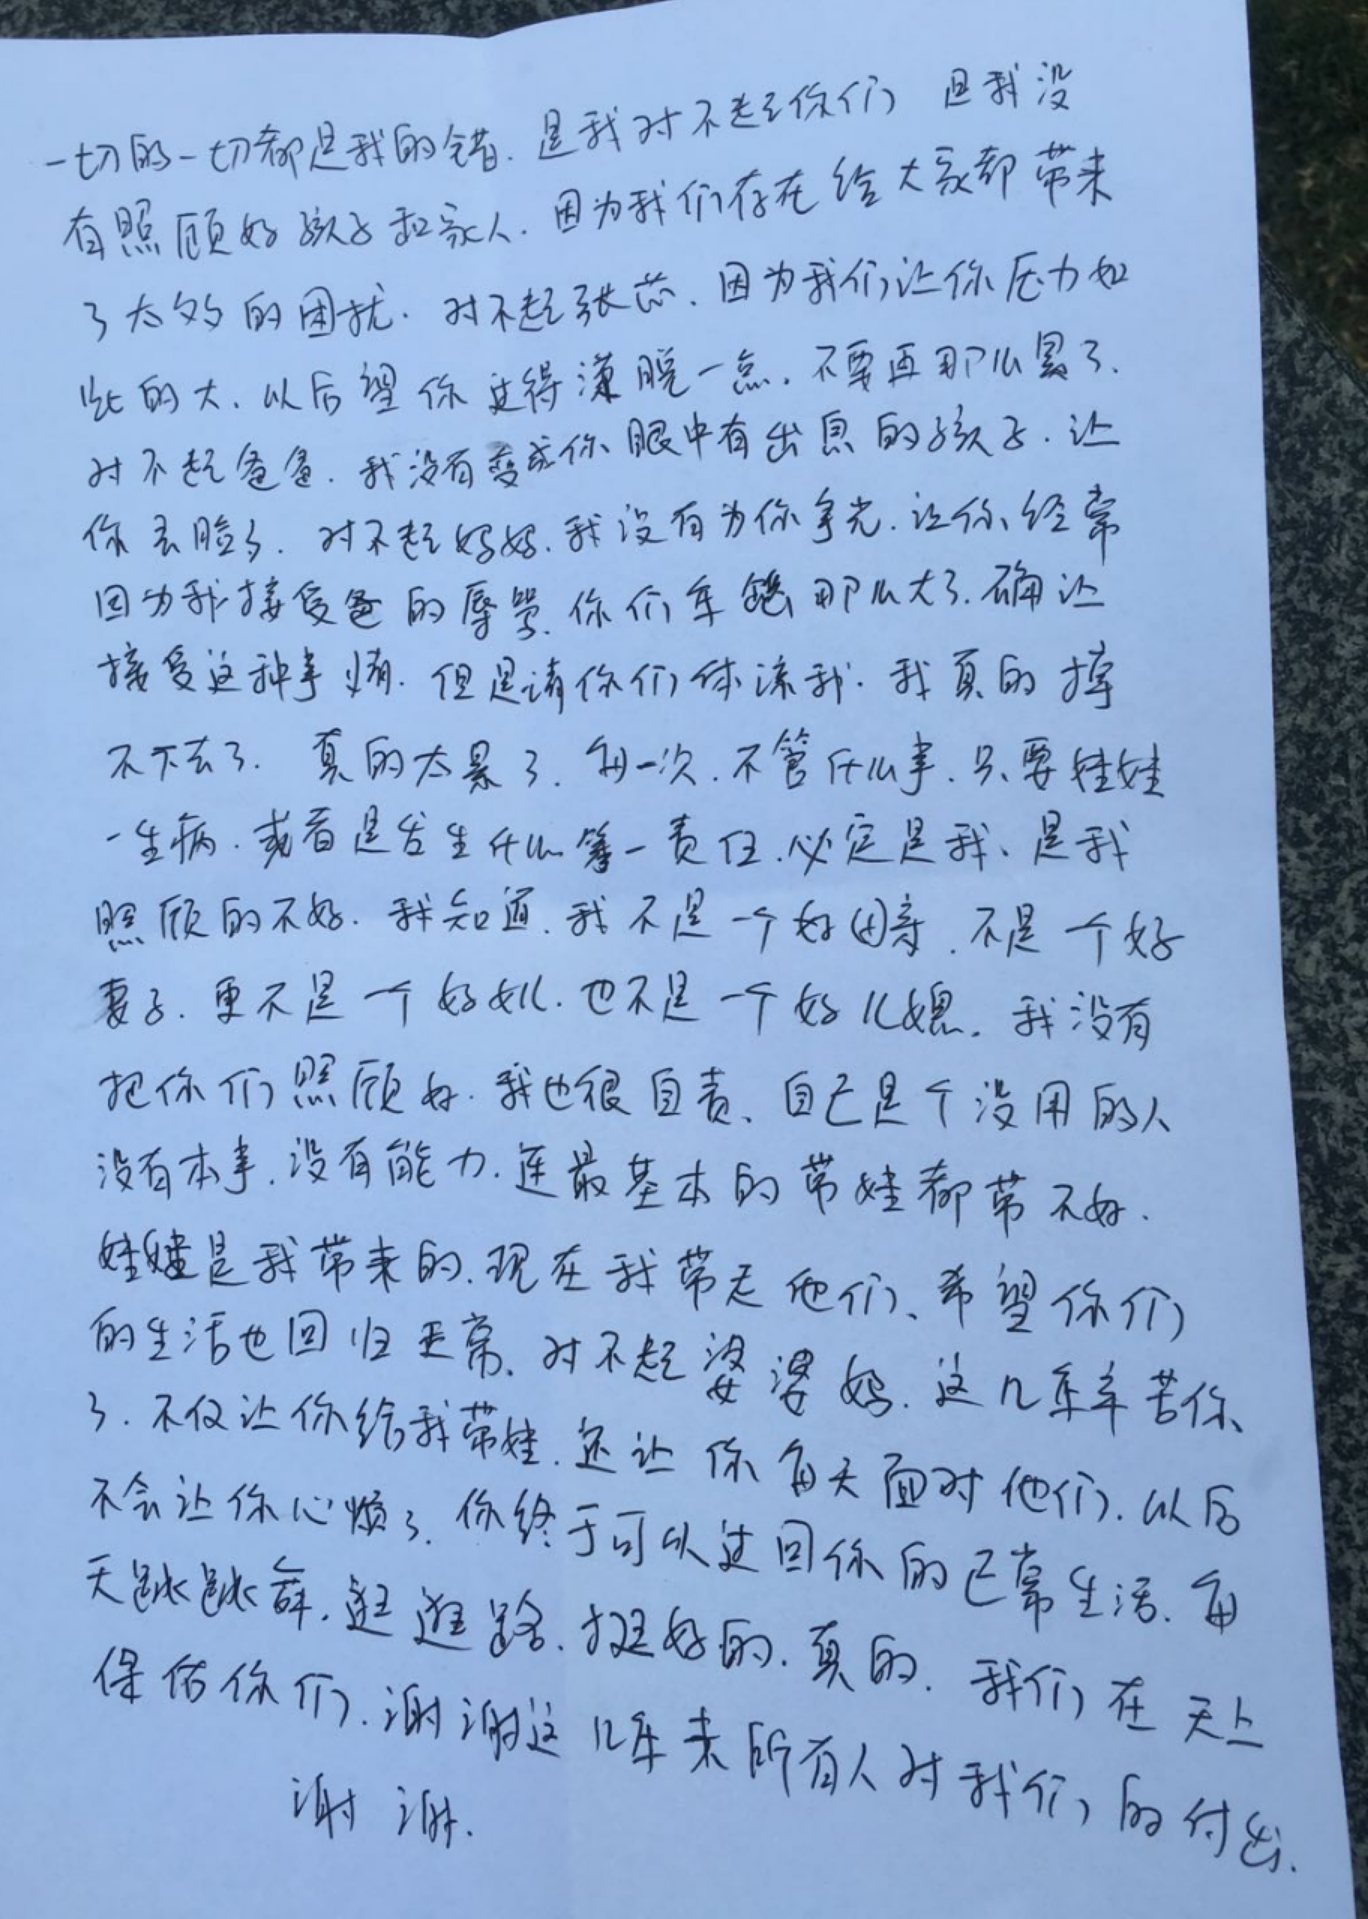 一切的一切都是我的错.是我对不起你们 是我没
有照顾好孩子和家人.因为我们存在给大家都带来
了太多的困扰.对不起张芯.因为我们让你压力如
此的大.以后望你过得潇脱一点.不要再那么累了.
对不起爸爸.我没有变成你眼中有出息的孩子.让
你丢脸了.对不起妈妈.我没有为你争光.让你经常
因为我接受爸的辱骂.你们年龄那么大了.确让
接受这种事情.但是请你们体谅我.我真的撑
不下去了.真的太累了.每一次.不管什么事.只要娃娃
一生病.或者是发生什么第一责任.必定是我、是我
照顾的不好.我知道.我不是一个好母亲.不是一个好
妻子.更不是一个好女儿.也不是一个好儿媳.我没有
把你们照顾好.我也很自责、自己是个没用的人
没有本事.没有能力.连最基本的带娃都带不好.
娃娃是我带来的.现在我带走他们、希望你们
的生活也回归正常.对不起婆婆妈.这几年辛苦你
了.不仅让你给我带娃.还让你每天面对他们.以后
不会让你心烦了.你终于可以过回你的正常生活.每
天跳跳舞.逛逛路.挺好的.真的.我们在天上
保佑你们.谢谢这几年来所有人对我们的付出.
谢谢.